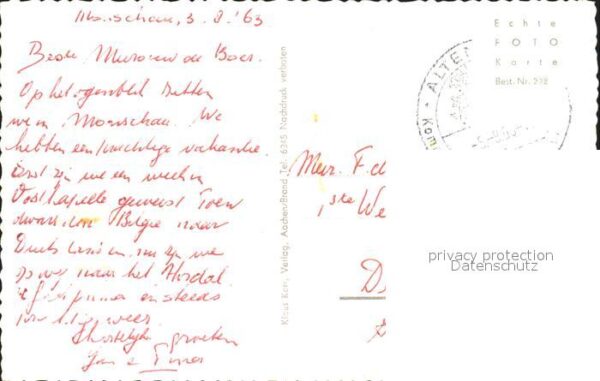 Monschau, 3.8.'63
Beste Mevrouw de Boer.
Op het ogenblik zitten
we in Monschau. We
hebben een prachtige vakantie.
Eerst zijn we een week in
Oostkapelle geweest Toen
dwars door België naar
Duitsland en nu zijn we
op weg naar het Ahrdal.
en steeds
weer.
Hartelijke groeten
Jan &
Klaus Kern, Verlag, Aachen/Brand, Tel. 6245 Nachdruck verboten
Echte
FOTO
Karte
Best. Nr. 292
ALTE
Mevr. F. d
1ste We
D
privacy protection
Datenschutz